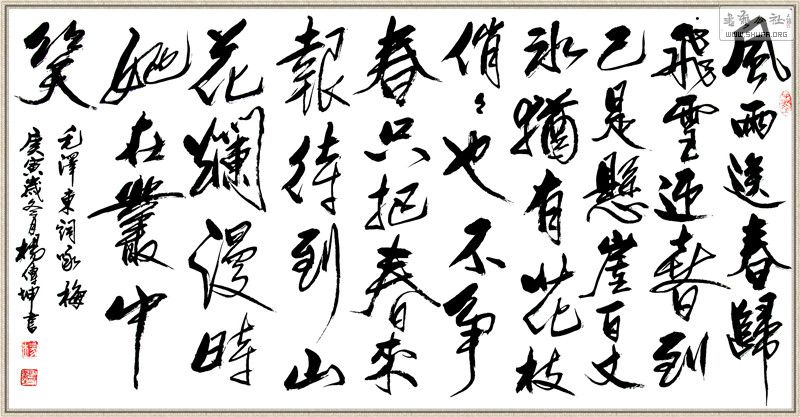 風雨送春歸
飛雪迎春到
已是懸崖百丈
冰猶有花枝
俏〻也不争
春〻只把春来
報待到山
花爛漫時
她在叢中
笑
毛澤東詞咏梅
庚寅歲冬月楊傳坤書